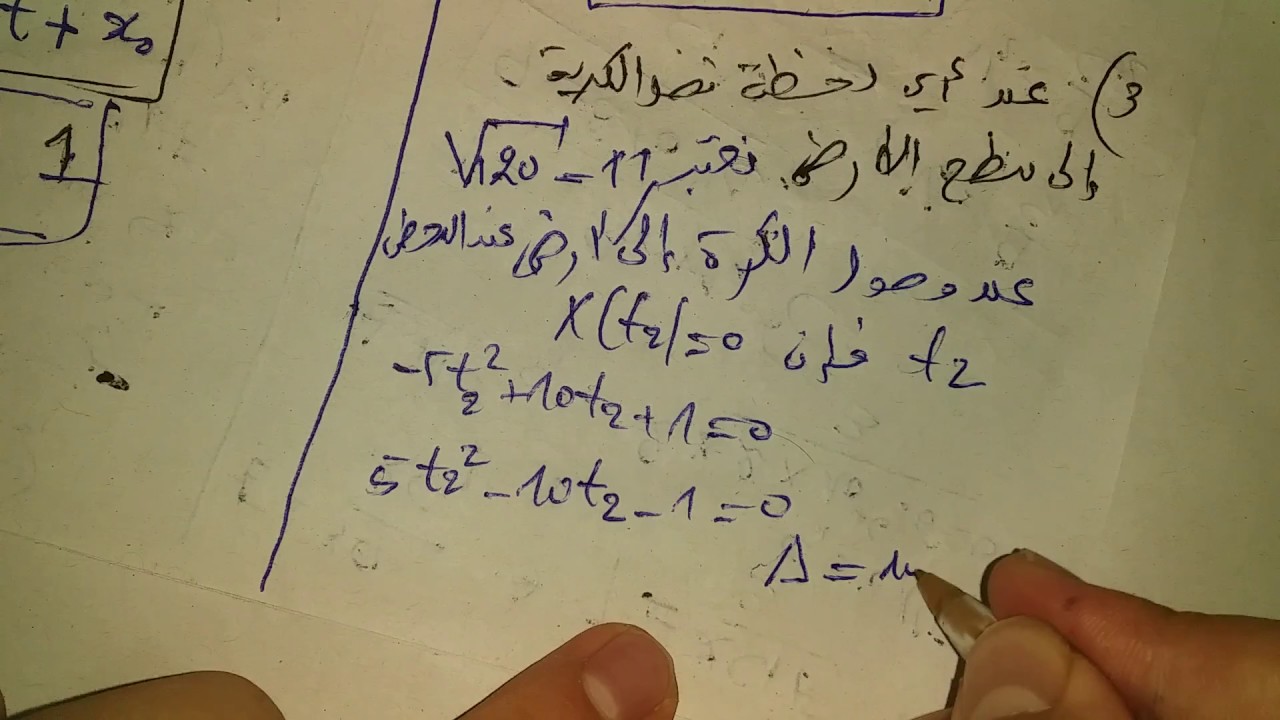 t + x₀
1
3) عند أي لحظة تصل الكرية
إلى سطح الأرض. نعتبر √120 = 11
عند وصول الكرة إلى الأرض عند اللحظ
t₂ فإن x(t₂)=0
-5t₂² + 10t₂ + 1 = 0
5t₂² - 10t₂ - 1 = 0
Δ = 10